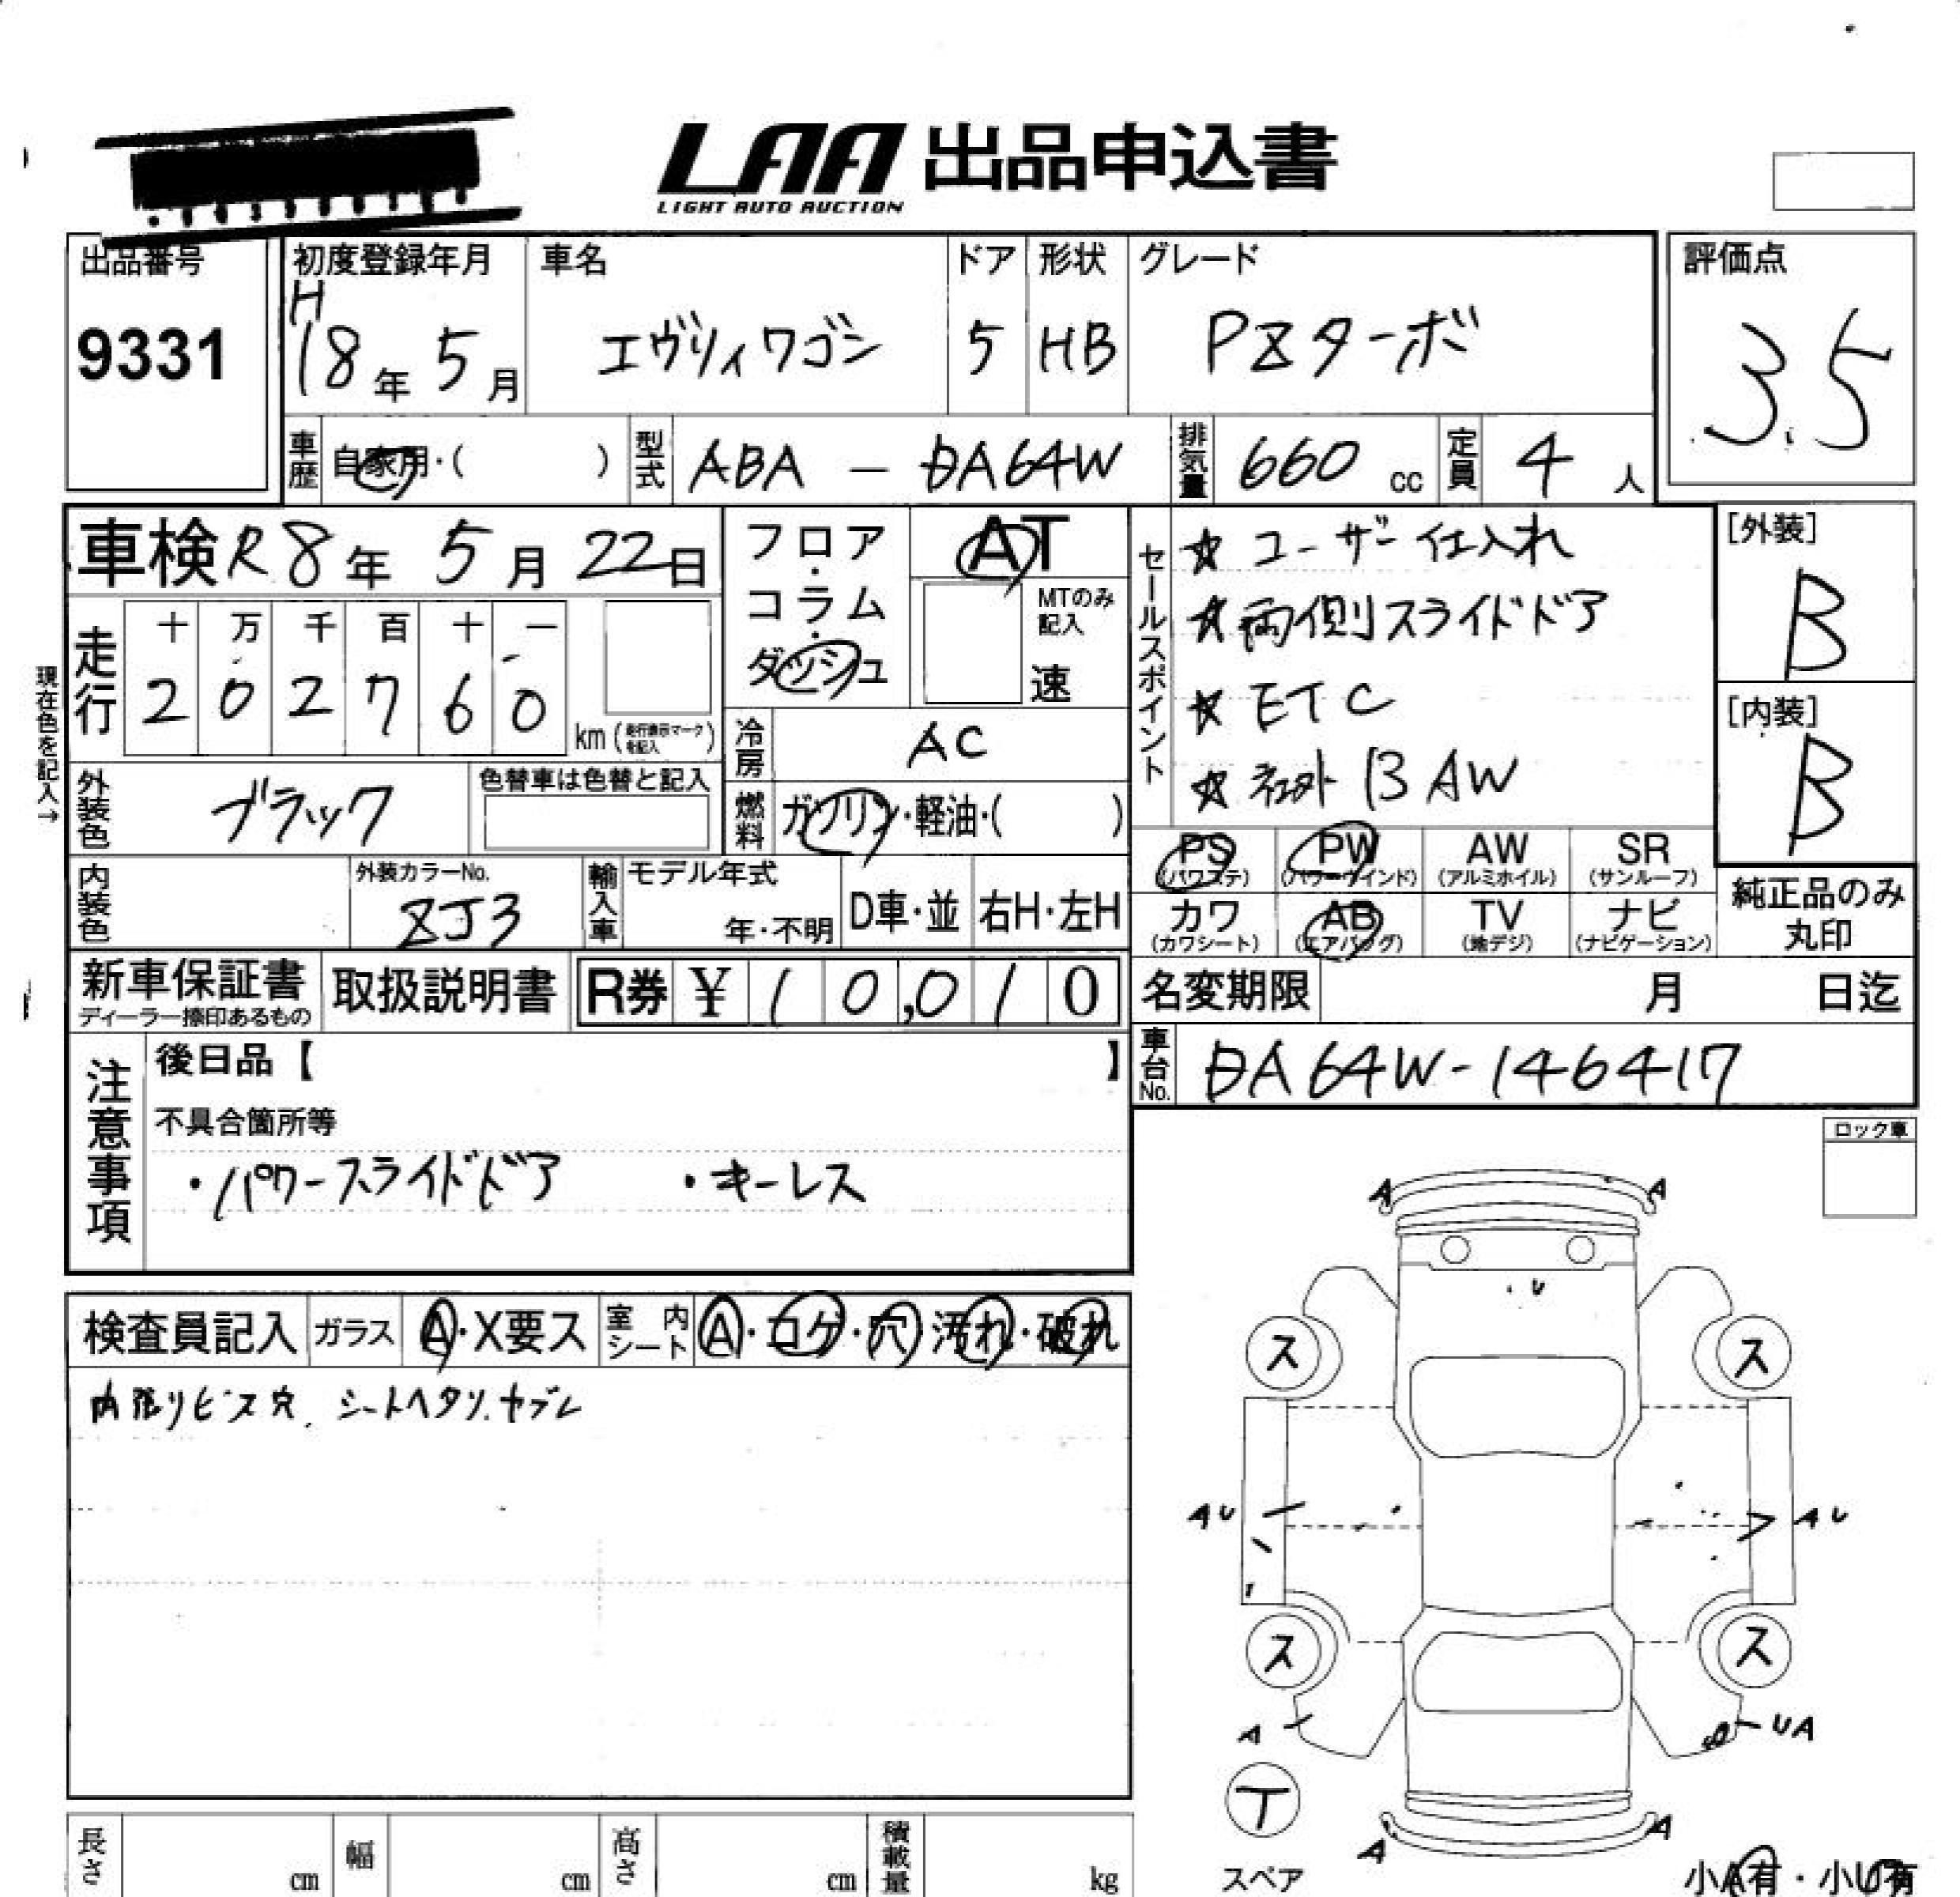 LAA 出品申込書
LIGHT AUTO AUCTION
出品番号
9331
初度登録年月
H
18年 5月
車名
エヴリィワゴン
ドア
5
形状
HB
グレード
PZターボ
評価点
3.5
車歴 自家用・( )
型式 ABA - DA64W
排気量 660 cc
定員 4 人
車検 R8年 5月 22日
フロア・コラム・ダッシュ
AT
MTのみ記入
速
走行
十 万 千 百 十 一
2 0 2 7 6 0 km (走行表示マークを記入)
現在色を記入→
冷房 AC
燃料 ガソリン・軽油・( )
外装色 ブラック
色替車は色替と記入
内装色
外装カラーNo.
ZJ3
輸入車
モデル年式
年・不明
D車・並
右H・左H
セールスポイント
☆ ユーザー仕入れ
☆ 両側スライドドア
☆ ETC
☆ 社外 13 AW
[外装]
B
[内装]
B
PS (パワステ)
PW (パワーウインド)
AW (アルミホイル)
SR (サンルーフ)
カワ (カワシート)
AB (エアバッグ)
TV (地デジ)
ナビ (ナビゲーション)
純正品のみ
丸印
新車保証書
ディーラー捺印あるもの
取扱説明書
R券 ¥ 10,010
名変期限 月 日迄
車台No. DA64W-146417
注意事項
後日品【 】
不具合箇所等
・パワースライドドア ・キーレス
ロック車
検査員記入
ガラス A・X要ス
室内シート A・コゲ・穴・汚れ・破れ
内張りビス穴、シートヘタリ、ヤブレ
A A
U
ス ス
AU AU
ス ス
A UA
T
スペア
A A
小A有・小U有
長さ cm
幅 cm
高さ cm
積載量 kg